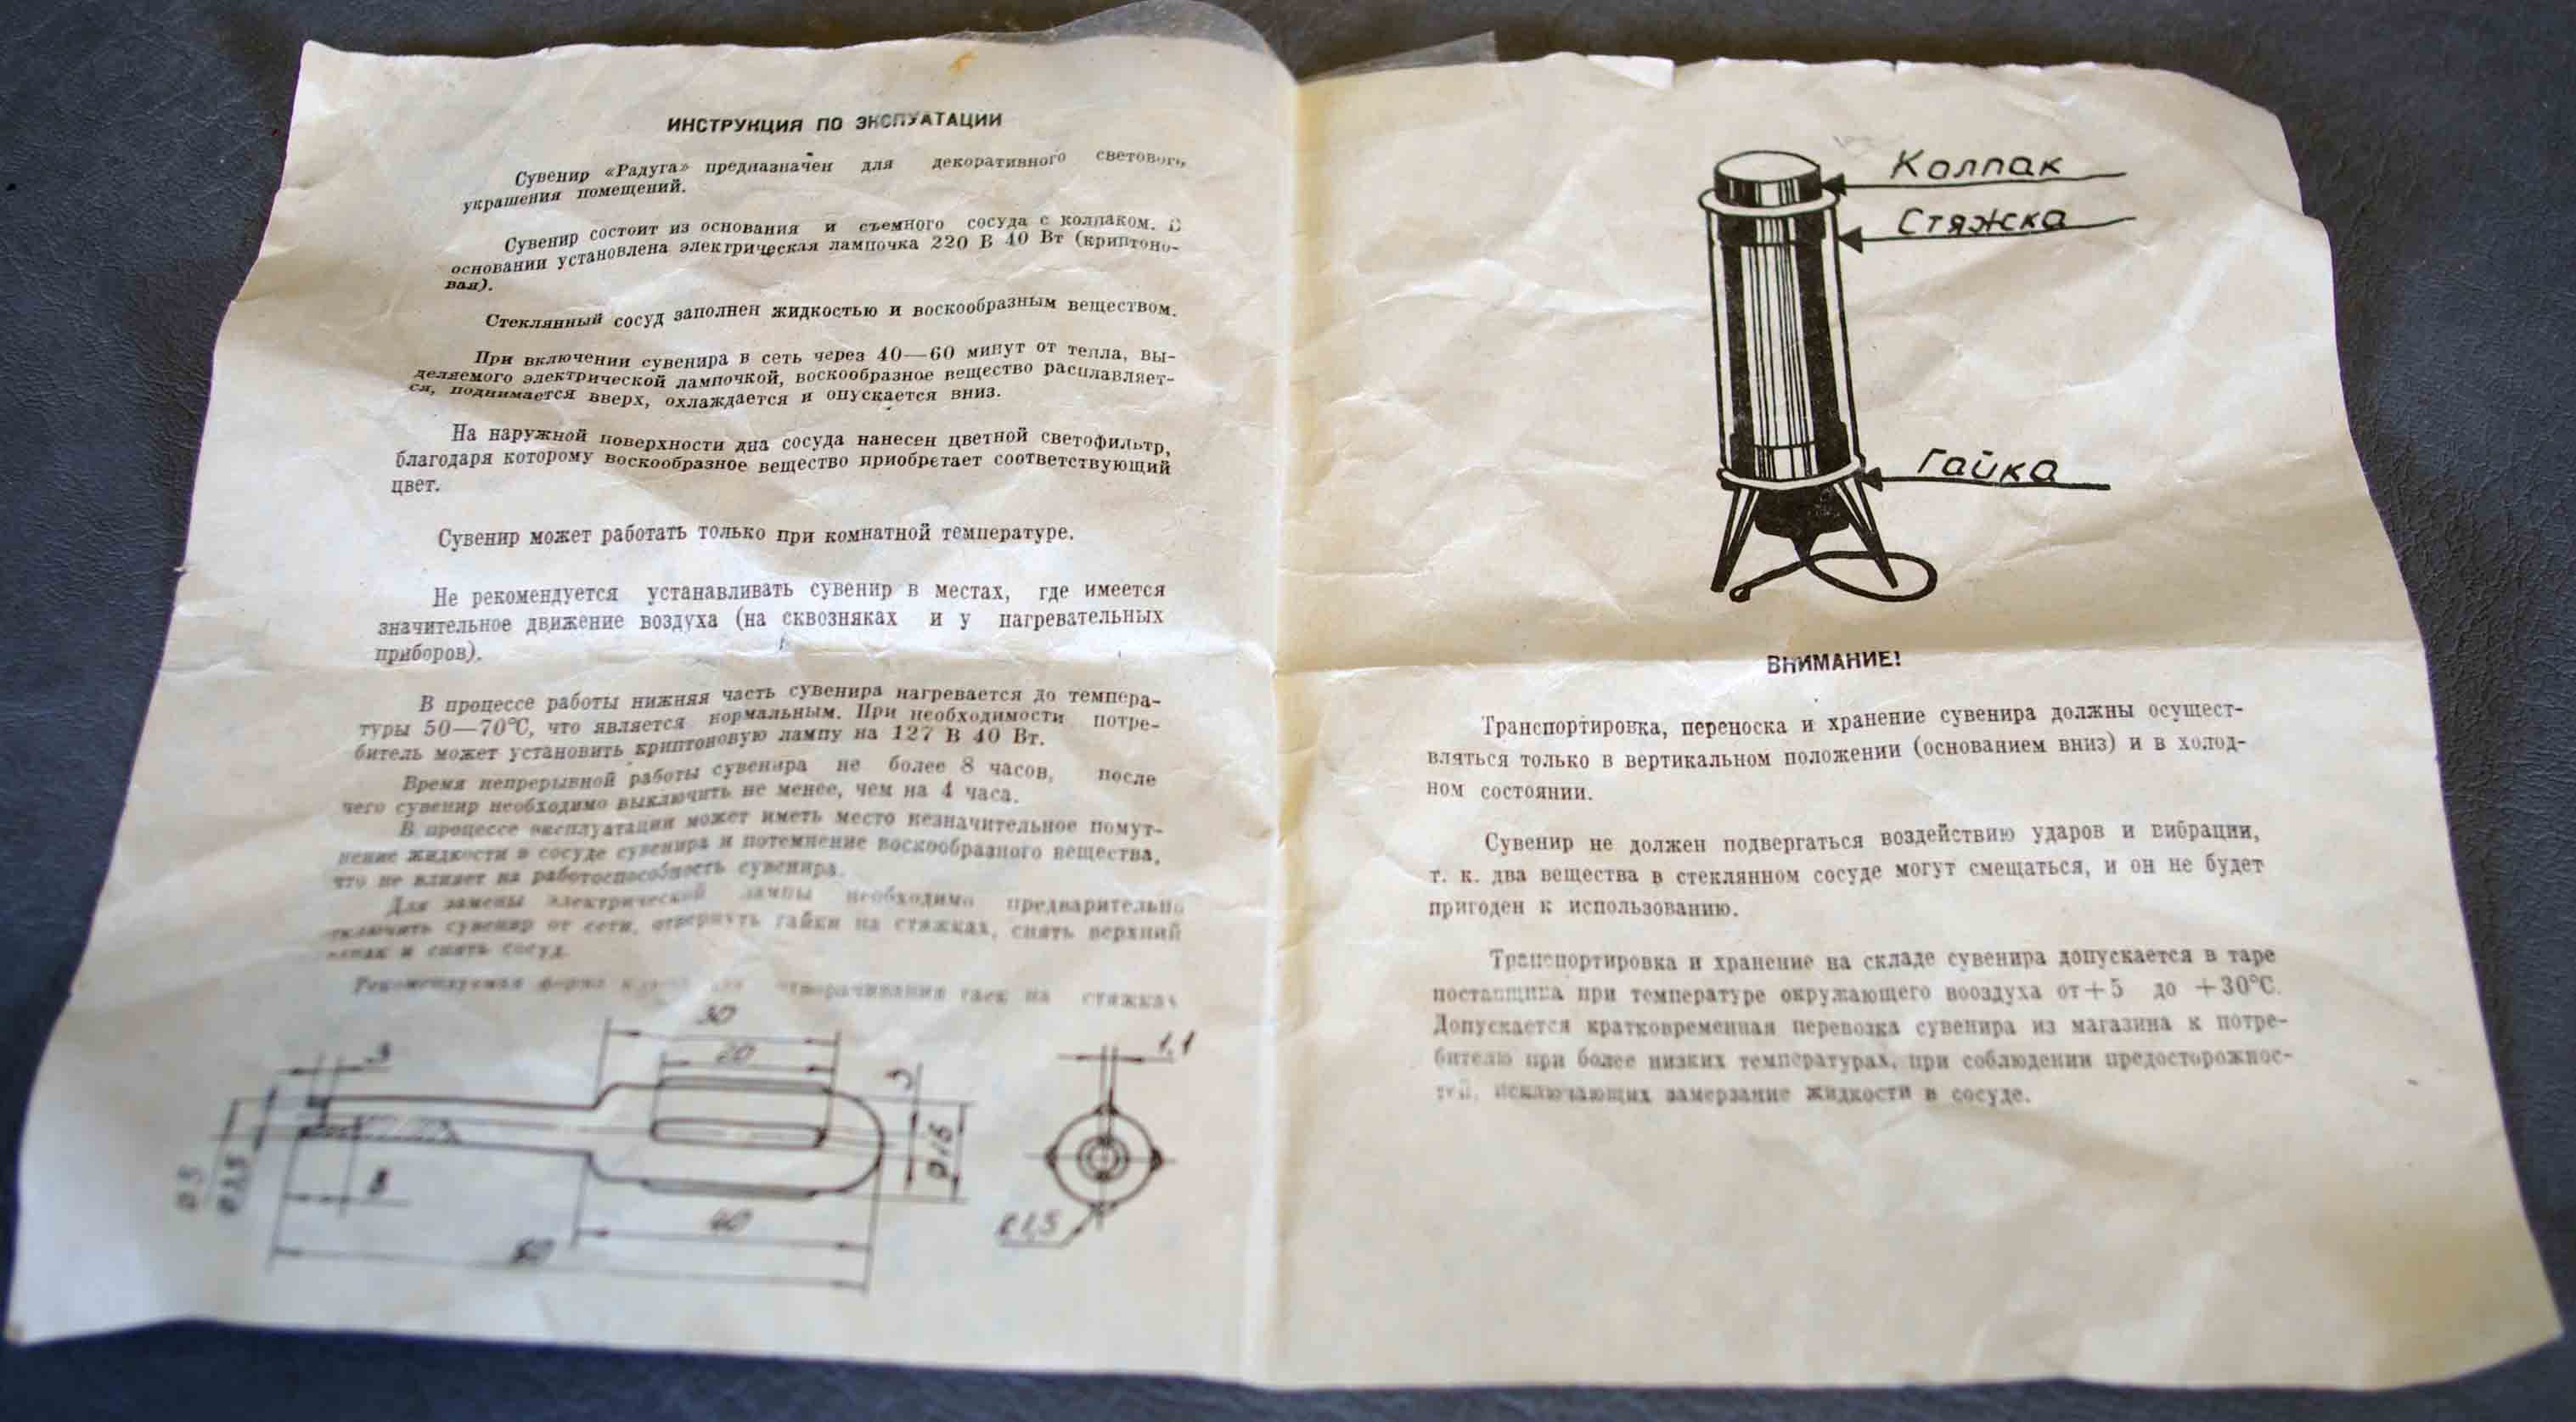 ИНСТРУКЦИЯ ПО ЭКСПУАТАЦИИ
Сувенир «Радуга» предназначен для декоративного
украшения помещений.
Сувенир состоит из основания и съемного сосуда с колпаком. В
основании установлена электрическая лампочка 220 В 40 Вт (криптоно-
вая).
Стеклянный сосуд заполнен жидкостью и воскообразным веществом.
При включении сувенира в сеть через 40—60 минут от тепла, вы-
деляемого электрической лампочкой, воскообразное вещество расплавляет-
ся, поднимается вверх, охлаждается и опускается вниз.
На наружной поверхности дна сосуда нанесен цветной светофильтр,
благодаря которому воскообразное вещество приобретает соответствующий
цвет.
Сувенир может работать только при комнатной температуре.
Не рекомендуется устанавливать сувенир в местах, где имеется
значительное движение воздуха (на сквозняках и у нагревательных
приборов).
В процессе работы нижняя часть сувенира нагревается до темпера-
туры 50—70°С, что является нормальным. При необходимости потре-
битель может установить криптоновую лампу на 127 В 40 Вт.
Время непрерывной работы сувенира не более 8 часов, после
чего сувенир необходимо выключить не менее, чем на 4 часа.
В процессе эксплуатации может иметь место незначительное помут-
нение жидкости в сосуде сувенира и потемнение воскообразного вещества,
что не влияет на работоспособность сувенира.
Для замены электрической лампы необходимо предварительно
сувенир от сети, отвернуть гайки на стяжках, снять верхний
и снять сосуд.
Рекомендуемая форма отворачивания гаек на стяжках
30
20
3
3
1,1
8
40
Колпак
Стяжка
Гайка
ВНИМАНИЕ!
Транспортировка, переноска и хранение сувенира должны осущест-
вляться только в вертикальном положении (основанием вниз) и в холод-
ном состоянии.
Сувенир не должен подвергаться воздействию ударов и вибрации,
т. к. два вещества в стеклянном сосуде могут смещаться, и он не будет
пригоден к использованию.
Транспортировка и хранение на складе сувенира допускается в таре
поставщика при температуре окружающего вооздуха от +5 до +30°С.
Допускается кратковременная перевозка сувенира из магазина к потре-
бителю при более низких температурах, при соблюдении предосторожнос-
тей, исключающих замерзание жидкости в сосуде.